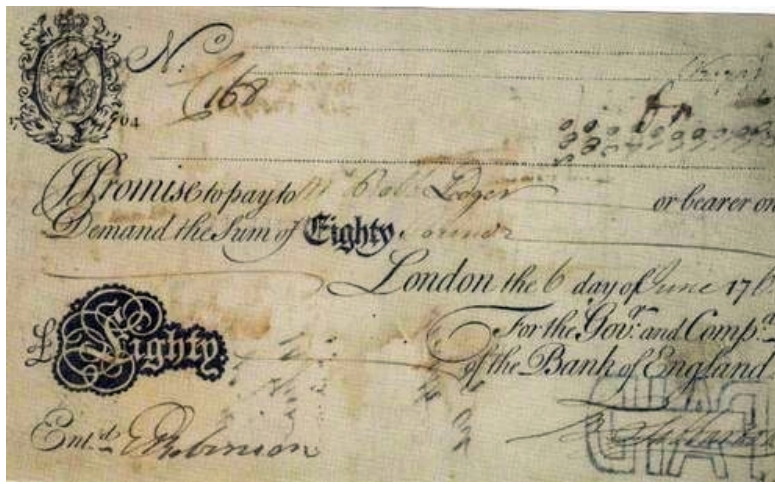 No
C 168
17 64
I Promise to pay to Mr. Robt. Ledger or bearer on
Demand the Sum of Eighty Pounds
London the 6 day of June 176
For the Govr. and Compa.
of the Bank of England
£ Eighty
Entd. E Robinson
PAID